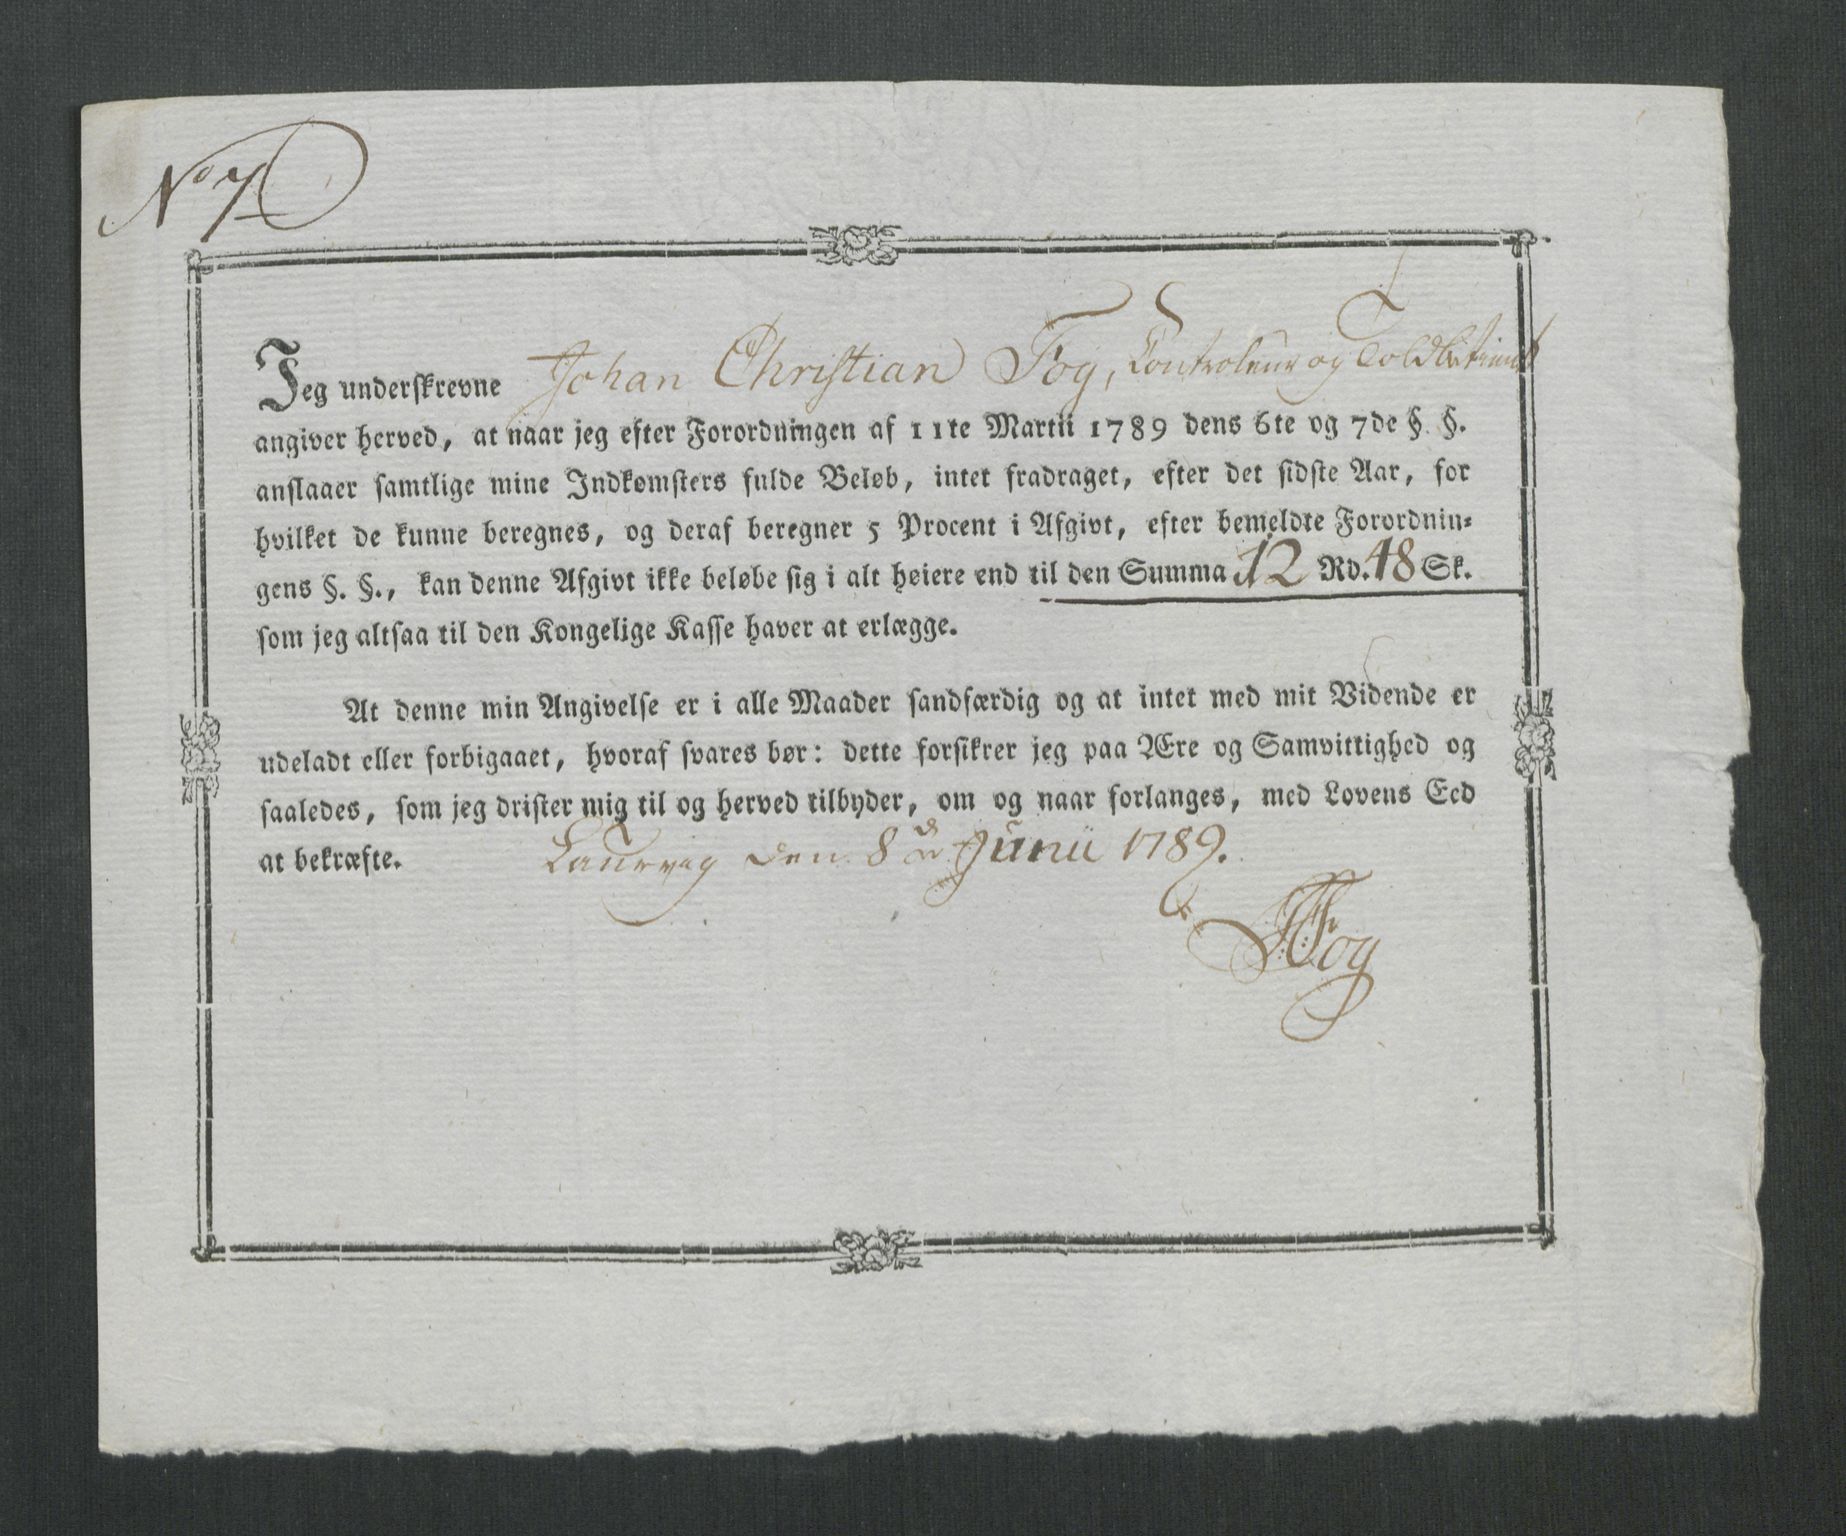 No 7
Jeg underskrevne Johan Christian Fog, Controleur og Toldbetient
angiver herved, at naar jeg efter Forordningen af 11te Martii 1789 dens 6te og 7de §. §.
anslaaer samtlige mine Indkomsters fulde Beløb, intet fradraget, efter det sidste Aar, for
hvilket de kunne beregnes, og deraf beregner 5 Procent i Afgivt, efter bemeldte Forordnin-
gens §. §., kan denne Afgivt ikke beløbe sig i alt høiere end til den Summa 12 Rd. 48 Sk.
som jeg altsaa til den Kongelige Kasse haver at erlægge.
At denne min Angivelse er i alle Maader sandfærdig og at intet med mit Vidende er
udeladt eller forbigaaet, hvoraf svares bør: dette forsikrer jeg paa Ære og Samvittighed og
saaledes, som jeg drister mig til og herved tilbyder, om og naar forlanges, med Lovens Eed
at bekræfte. Laurvig den 8de Junii 1789.
JCFog